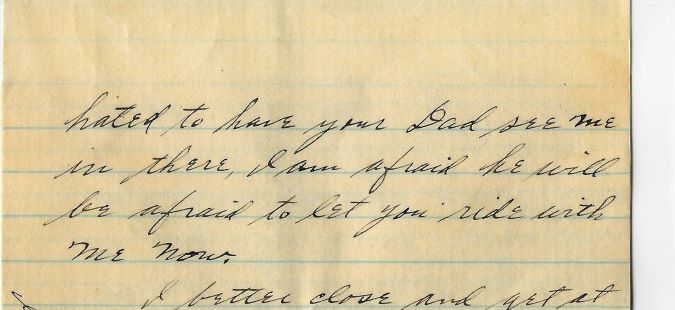 hated to have your Dad see me
in there, I am afraid he will
be afraid to let you ride with
me now.
I better close and get at